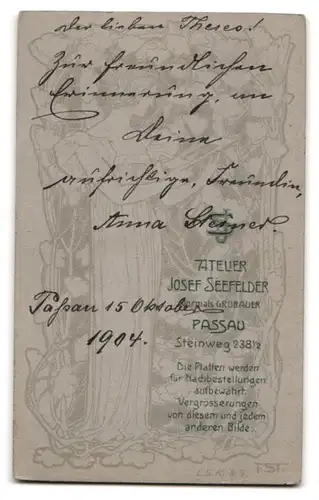 Der lieben Theres!
Zur freundlichen
Erinnerung, an
Deine
aufrichtige, Freundin,
Anna Steiner.
ATELIER
JOSEF SEEFELDER
vormals GRUBAUER
PASSAU
Steinweg 238½
Paßau 15 Oktober
1904.
Die Platten werden
für Nachbestellungen
aufbewahrt.
Vergrösserungen
von diesem und jedem
anderen Bilde.